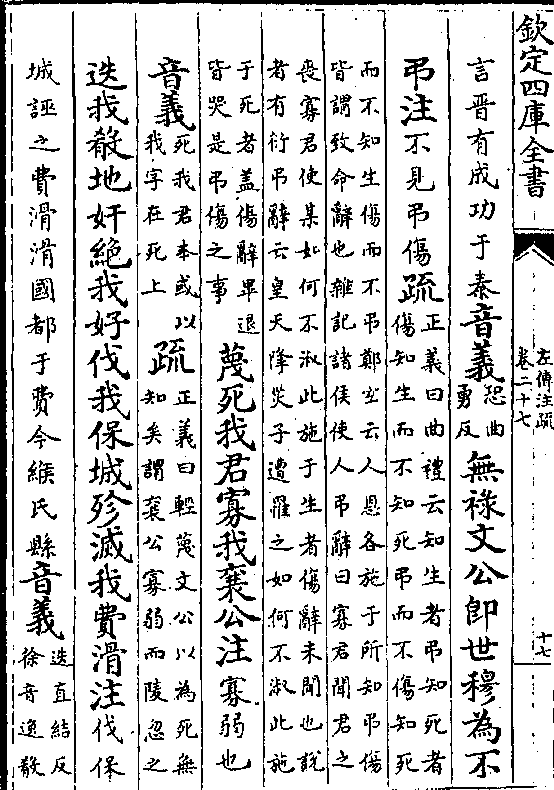 欽定四庫全書
左傳注疏
卷二十七
十七
言晋有成功于秦音義恐曲
勇反
無祿文公即世穆為不
弔注不見弔傷疏正義曰曲禮云知生者弔知死者
傷知生而不知死弔而不傷知死
而不知生傷而不弔鄭玄云人恩各施于所知弔傷
皆謂致命辭也雜記諸侯使人弔辭曰寡君聞君之
喪寡君使某如何不淑此施于生者傷辭未聞也說
者有衍弔辭云皇天降災子遭罹之如何不淑此施
于死者盖傷辭畢退
皆哭是弔傷之事
蔑死我君寡我襄公注寡弱也
音義死我君本或以
我字在死上
疏正義曰輕蔑文公以為死無
知矣謂襄公寡弱而陵忽之
迭我殽地奸絶我好伐我保城殄滅我費滑注伐保
城誣之費滑滑國都于費今緱氏縣音義迭直結反
徐音逸殽